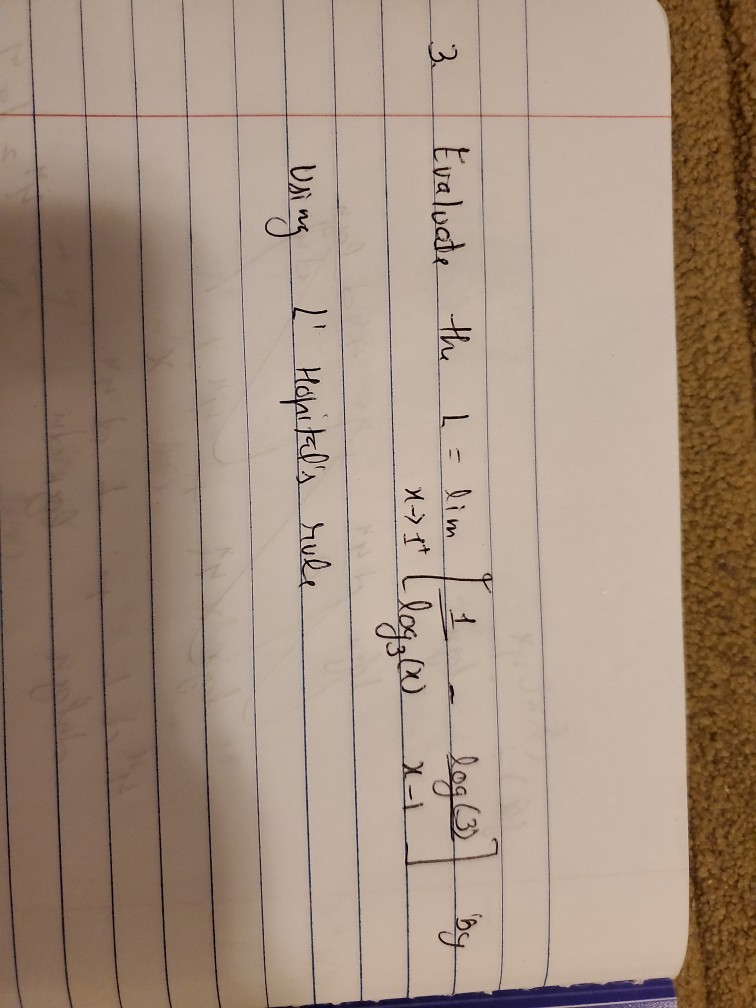 3. Evaluate the L = lim x→1⁺ [ 1/log₃(x) - log(3)/x-1 ] by
Using L' Hopital's rule